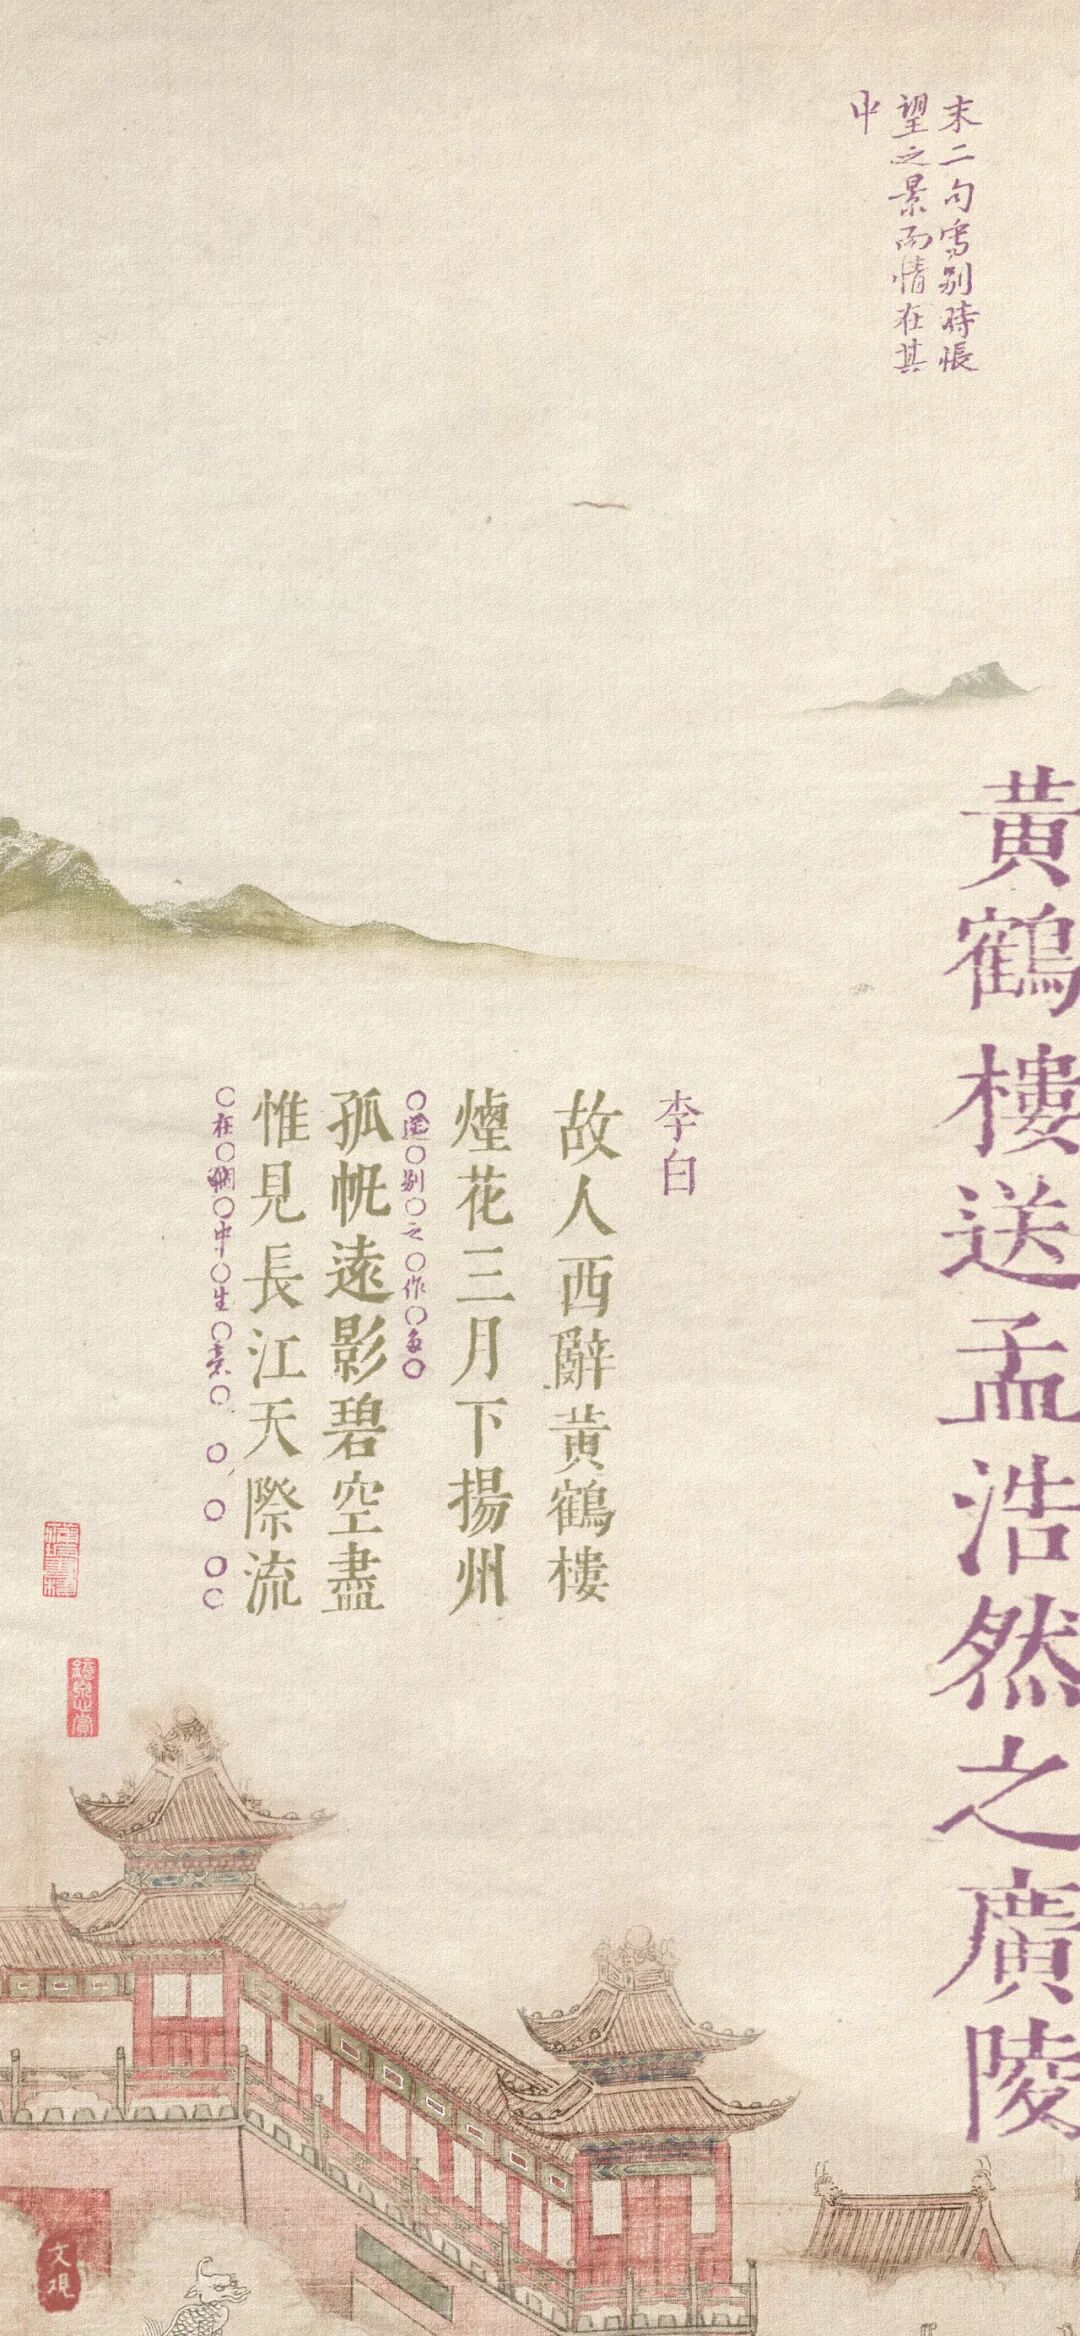 末二句寫別時悵
望之景而情在其
中
黃鶴樓送孟浩然之廣陵
李白
故人西辭黃鶴樓
煙花三月下揚州
○送○別○之○作○多○
孤帆遠影碧空盡
惟見長江天際流
○在○中○生○
文观